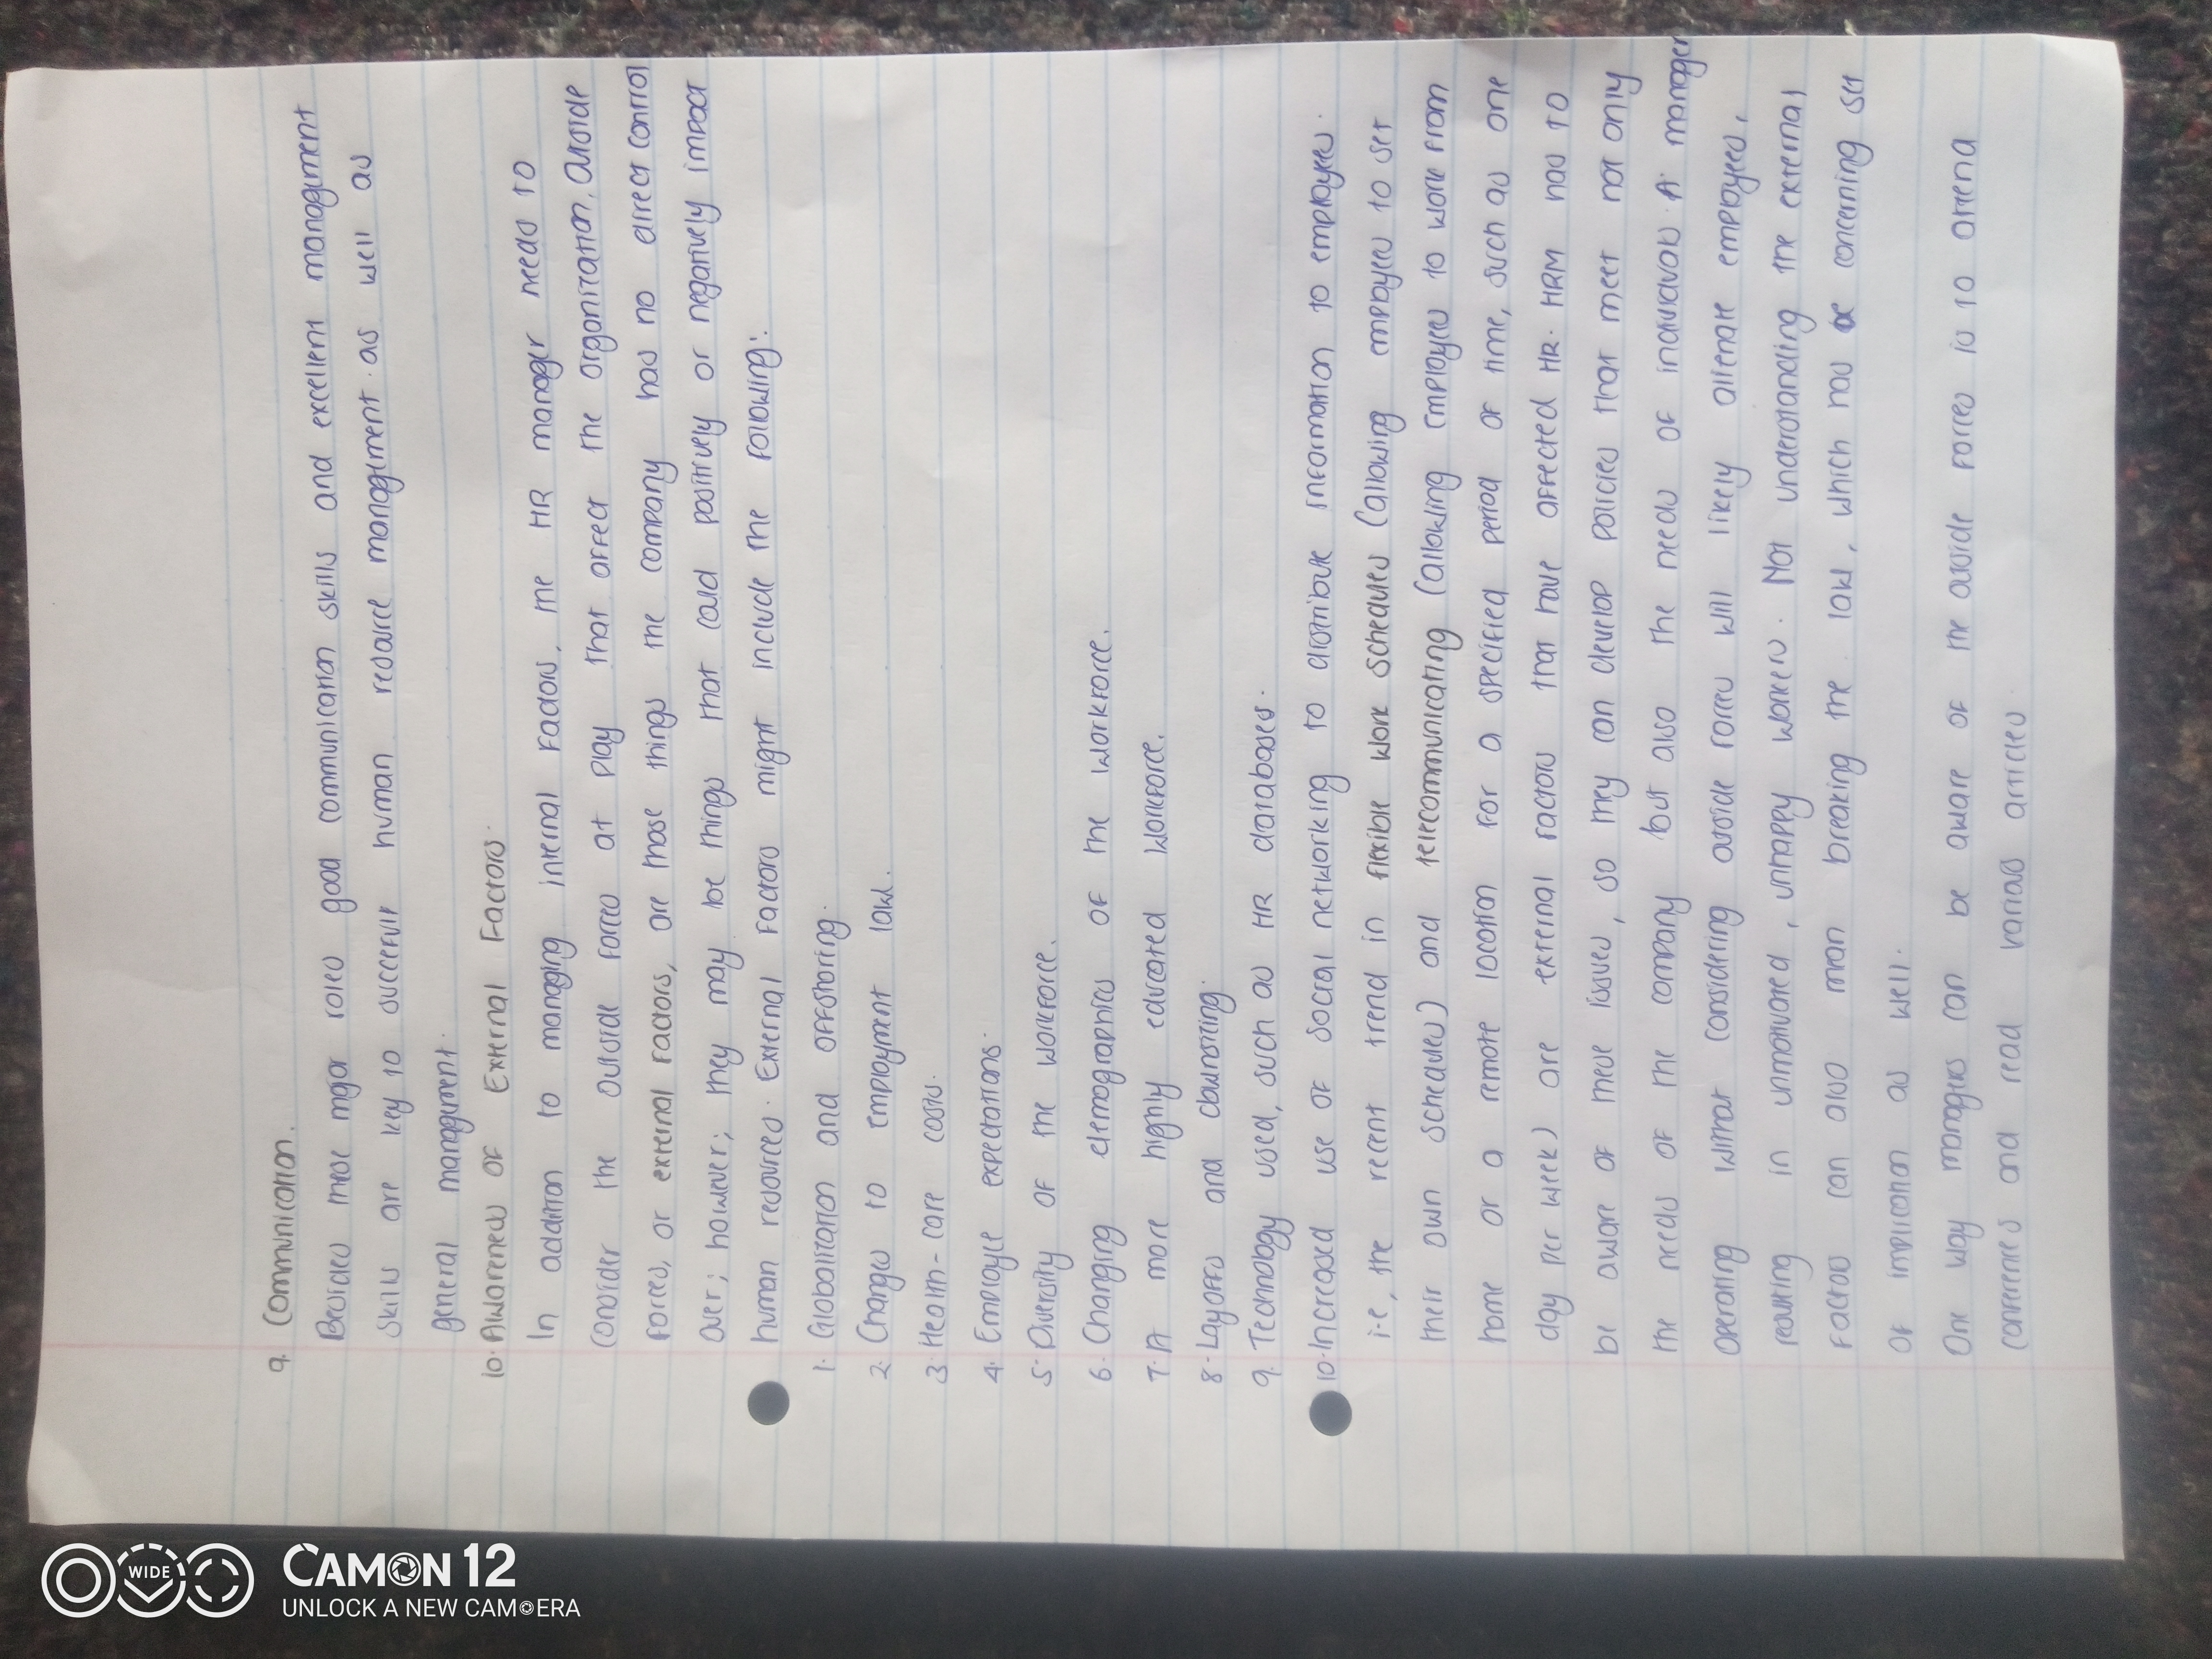 9. Communication.
Besides these major roles good communication skills and excellent management
skills are key to successful human resource management as well as
general management.
10. Awareness of External Factors.
In addition to managing internal factors, the HR manager needs to
consider the outside forces at play that affect the organization. Outside
forces, or external factors, are those things the company has no direct control
over; however; they may be things that could positively or negatively impact
human resources. External factors might include the following:
1. Globalization and offshoring.
2. Changes to employment law.
3. Health-care costs.
4. Employee expectations.
5. Diversity of the workforce.
6. Changing demographics of the workforce.
7. A more highly educated workforce.
8. Layoffs and downsizing.
9. Technology used, such as HR databases.
10. Increased use of social networking to distribute information to employees.
i.e, the recent trend in flexible work schedules (allowing employees to set
their own schedules) and telecommunicating (allowing employees to work from
home or a remote location for a specified period of time, such as one
day per week) are external factors that have affected HR. HRM has to
be aware of these issues, so they can develop policies that meet not only
the needs of the company but also the needs of individuals. A manager
operating without considering outside forces will likely alienate employees,
resulting in unmotivated, unhappy workers. Not understanding the external
factors can also mean breaking the law, which has a concerning set
of implication as well.
One way managers can be aware of the outside forces is to attend
conferences and read various articles
CAMON 12
UNLOCK A NEW CAMERA
WIDE